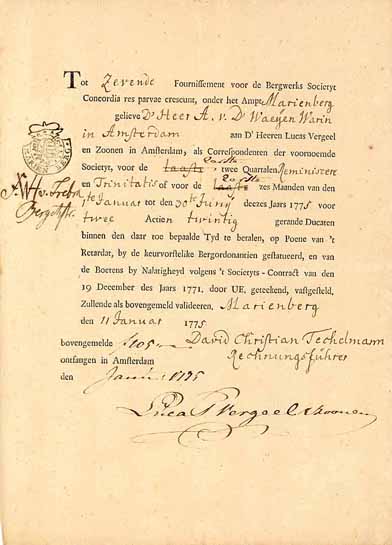 Tot Zevende Fournissement voor de Bergwerks Societyt
Concordia res parvae crescunt, onder het Ampt Marienberg
gelieve Dr Heer A. v. Dr Waeyen Warin
in Amsterdam aan D' Heeren Lucas Vergeel
en Zoonen in Amsterdam, als Correspondenten der voornoemde
Societyt, voor de laaste twee Quartalen Reminiscere
en Trinitatis of voor de laaste zes Maanden van den
Januar tot den 30te Juny deezes Jaars 1775 voor
twee Actien twintig gerande Ducaten
binnen den daar toe bepaalde Tyd te betalen, op Poene van 't
Retardat, by de keurvorstelike Bergordonantien gestatueerd, en van
de Boetens by Nalatigheyd volgens 't Societyts-Contract van den
19 December des Jaars 1771. door UE. geteekend, vastgesteld.
Zullende als bovengemeld valideeren. Marienberg
den 11 Januar 1775
David Christian Techelmann
bovengemelde f105
Rechnungsführer
ontfangen in Amsterdam
den Janu: 1775
Luca Vergeel & Zoonen